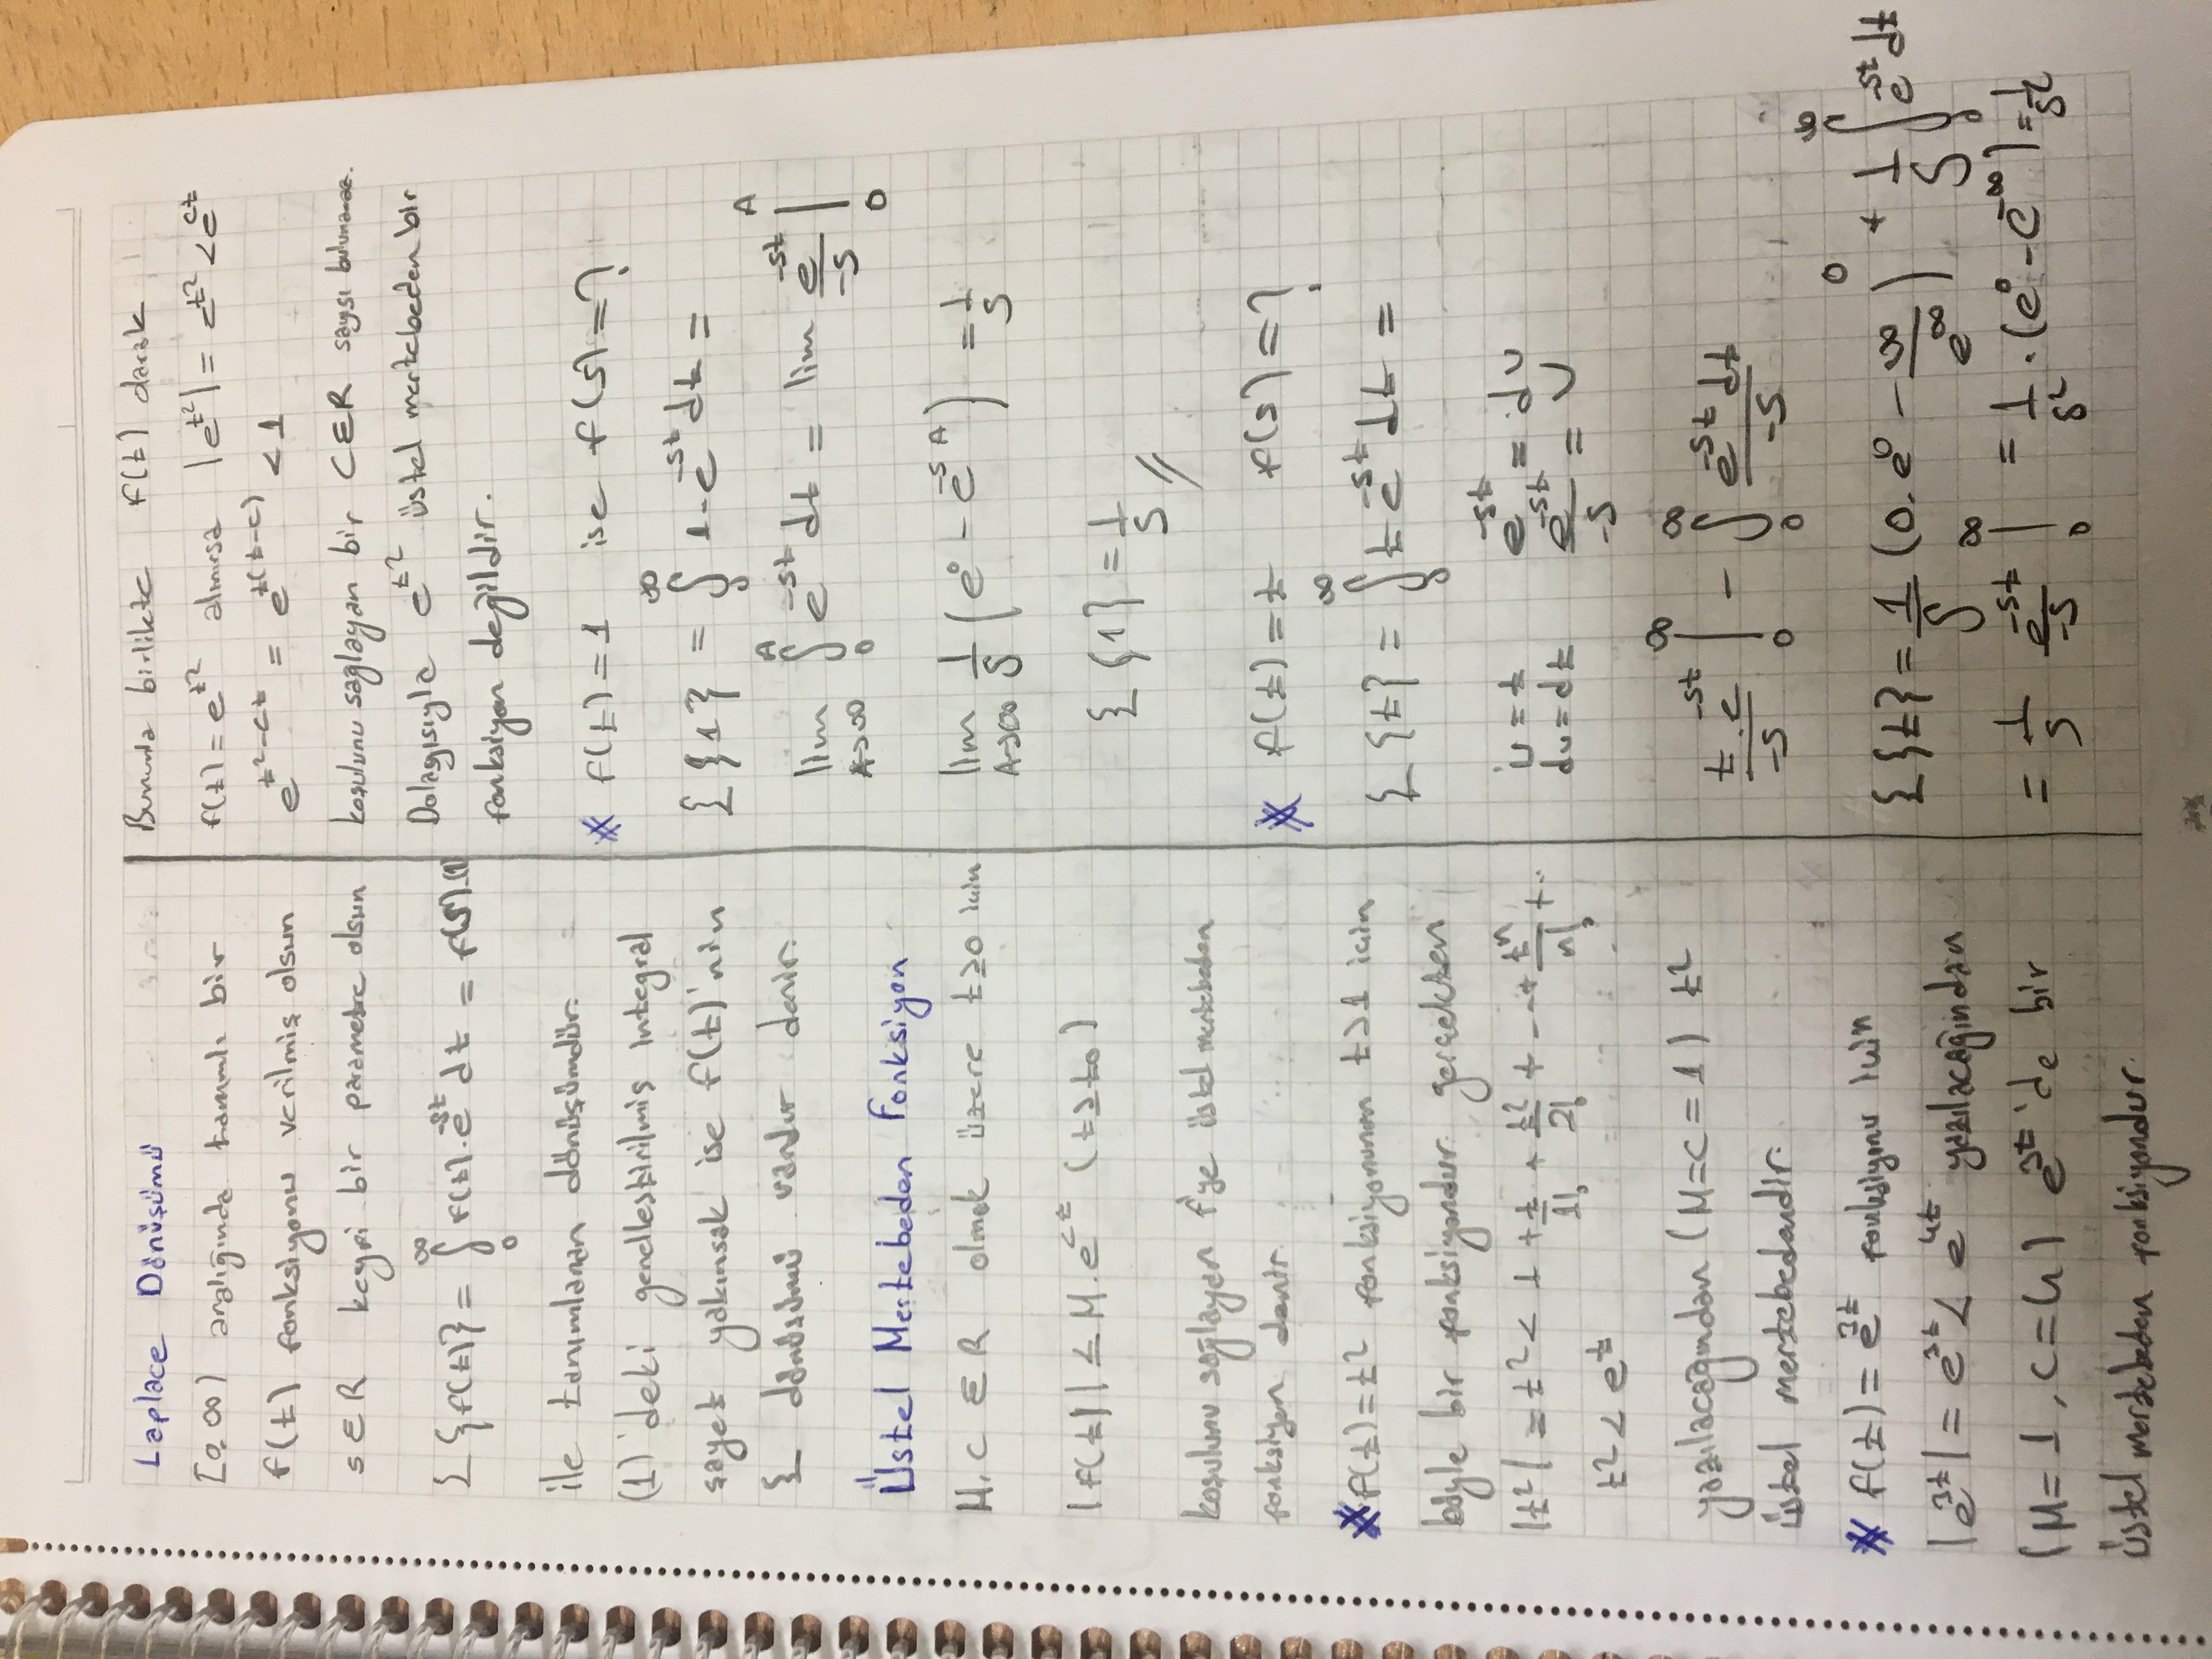 Laplace Dönüşümü
[0,∞) aralığında tanımlı bir
f(t) fonksiyonu verilmiş olsun
s∈R keyfi bir parametre olsun
L{f(t)} = ∫₀^∞ f(t).e^-st dt = f(s).(1)
ile tanımlanan dönüşümdür.
(1)'deki genelleştirilmiş integral
şayet yakınsak ise f(t)'nin
L dönüşümü vardır denir.
Üstel Mertebeden Fonksiyon
M,C ∈ R olmak üzere t≥0 için
|f(t)| ≤ M.e^ct (t≥t₀)
koşulunu sağlayan f'ye üstel mertebeden
fonksiyon denir.
* f(t)=t² fonksiyonunun t>1 için
böyle bir fonksiyondur. gerçekten
|t²| = t² < 1 + t/1! + t²/2! + --+ t^n/n! + ..
t² < e^t
yazılacağından (M=c=1) t²
üstel mertebedendir.
* f(t) = e^3t fonksiyonu için
|e^3t| = e^3t < e^4t yazılacağından
(M=1, c=4) e^3t 'de bir
üstel mertebeden fonksiyondur.
Bununla birlikte f(t) olarak
f(t) = e^t² alınırsa |e^t²| = e^t² < e^ct
e^t²-ct = e^t(t-c) < 1
koşulunu sağlayan bir C∈R sayısı bulunamaz.
Dolayısıyla e^t² üstel mertebeden bir
fonksiyon değildir.
* f(t) = 1 ise f(s) = ?
L{1} = ∫₀^∞ 1.e^-st dt =
lim A→∞ ∫₀^A e^-st dt = lim e^-st/-s |₀^A
lim A→∞ 1/s (e⁰ - e^-sA) = 1/s
L{1} = 1/s //
* f(t) = t f(s) = ?
L{t} = ∫₀^∞ t e^-st dt =
u = t e^-st = dv
du = dt e^-st/-s = v
t.e^-st/-s |₀^∞ - ∫₀^∞ e^-st dt/-s
L{t} = 1/s (0.e⁰ - ∞/e^∞)⁰ + 1/s ∫₀^∞ e^-st dt
= 1/s e^-st/-s |₀^∞ = 1/s² . (e⁰ - e^-∞) = 1/s²